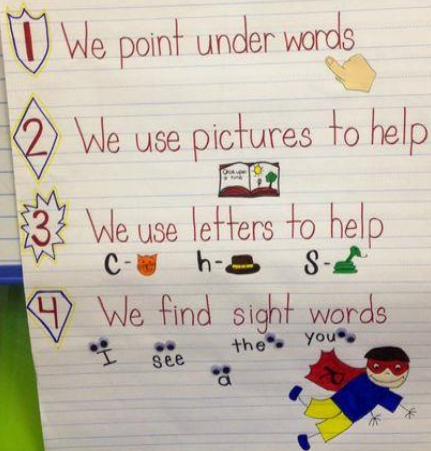 1 We point under words
2 We use pictures to help
Once upon a time
3 We use letters to help
c- h- s-
4 We find sight words
I see the you
a